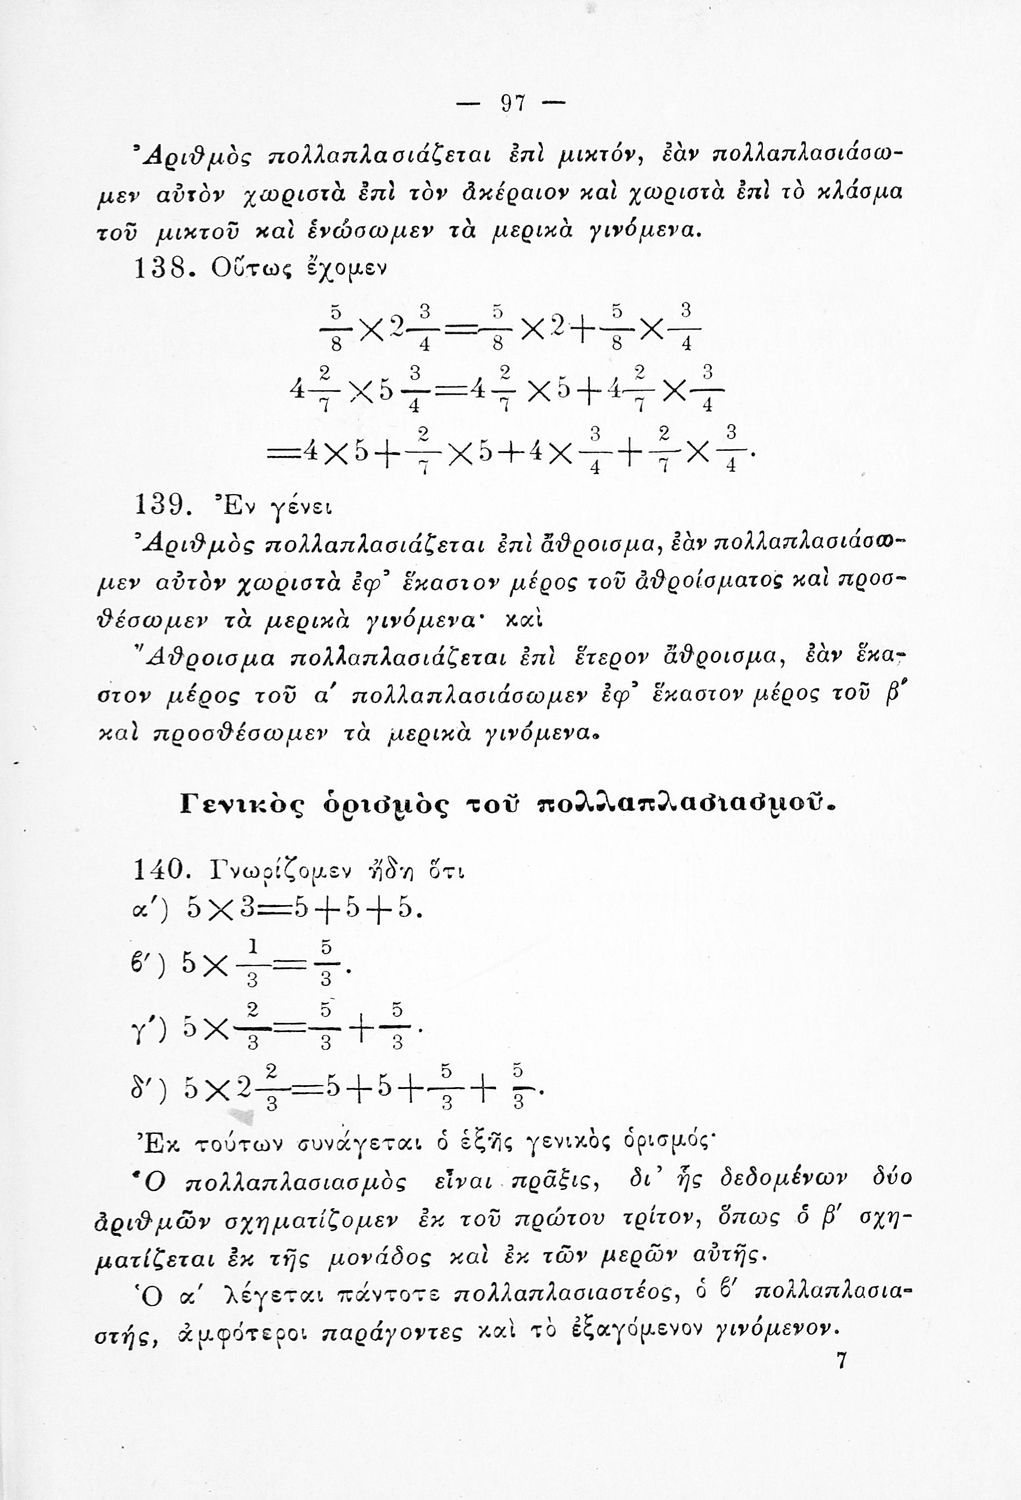 — 97 —
Ἀριθμὸς πολλαπλασιάζεται ἐπὶ μικτόν, ἐὰν πολλαπλασιάσω-
μεν αὐτὸν χωριστὰ ἐπὶ τὸν ἀκέραιον καὶ χωριστὰ ἐπὶ τὸ κλάσμα
τοῦ μικτοῦ καὶ ἑνώσωμεν τὰ μερικὰ γινόμενα.
138. Οὕτως ἔχομεν
5/8 × 2 3/4 = 5/8 × 2 + 5/8 × 3/4
4 2/7 × 5 3/4 = 4 2/7 × 5 + 4 2/7 × 3/4
= 4 × 5 + 2/7 × 5 + 4 × 3/4 + 2/7 × 3/4.
139. Ἐν γένει
Ἀριθμὸς πολλαπλασιάζεται ἐπὶ ἄθροισμα, ἐὰν πολλαπλασιάσω-
μεν αὐτὸν χωριστὰ ἐφ’ ἕκαστον μέρος τοῦ ἀθροίσματος καὶ προσ-
θέσωμεν τὰ μερικὰ γινόμενα· καὶ
Ἄθροισμα πολλαπλασιάζεται ἐπὶ ἕτερον ἄθροισμα, ἐὰν ἕκα-
στον μέρος τοῦ α′ πολλαπλασιάσωμεν ἐφ’ ἕκαστον μέρος τοῦ β′
καὶ προσθέσωμεν τὰ μερικὰ γινόμενα.
Γενικὸς ὁρισμὸς τοῦ πολλαπλασιασμοῦ.
140. Γνωρίζομεν ἤδη ὅτι
α′) 5 × 3 = 5 + 5 + 5.
ϐ′) 5 × 1/3 = 5/3.
γ′) 5 × 2/3 = 5/3 + 5/3.
δ′) 5 × 2 2/3 = 5 + 5 + 5/3 + 5/3.
Ἐκ τούτων συνάγεται ὁ ἑξῆς γενικὸς ὁρισμός·
Ὁ πολλαπλασιασμὸς εἶναι πρᾶξις, δι’ ἧς δεδομένων δύο
ἀριθμῶν σχηματίζομεν ἐκ τοῦ πρώτου τρίτον, ὅπως ὁ β′ σχη-
ματίζεται ἐκ τῆς μονάδος καὶ ἐκ τῶν μερῶν αὐτῆς.
Ὁ α′ λέγεται πάντοτε πολλαπλασιαστέος, ὁ ϐ′ πολλαπλασια-
στής, ἀμφότεροι παράγοντες καὶ τὸ ἐξαγόμενον γινόμενον.
7